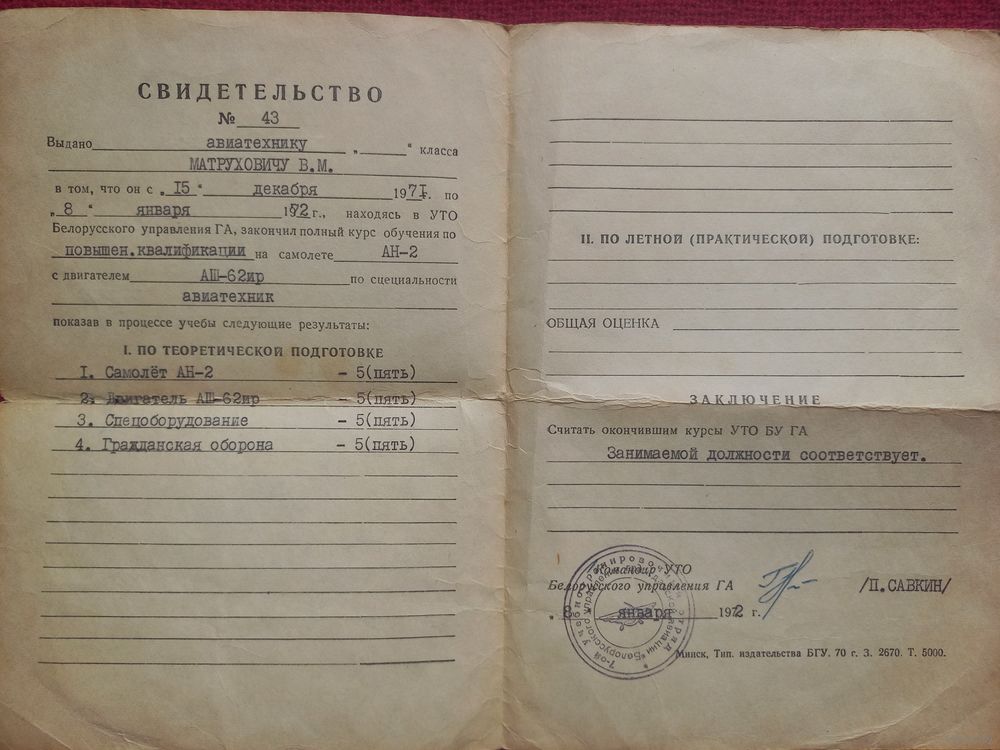 СВИДЕТЕЛЬСТВО
№ 43
Выдано авиатехнику „ “ класса
МАТРУХОВИЧУ В.М.
в том, что он с „15“ декабря 1971г. по
„8“ января 1972 г., находясь в УТО
Белорусского управления ГА, закончил полный курс обучения по
повышен.квалификации на самолете АН-2
с двигателем АШ-62ир по специальности
авиатехник
показав в процессе учебы следующие результаты:
I. ПО ТЕОРЕТИЧЕСКОЙ ПОДГОТОВКЕ
I. Самолёт АН-2 - 5(пять)
2. Двигатель АШ-62ир - 5(пять)
3. Спецоборудование - 5(пять)
4. Гражданская оборона - 5(пять)
II. ПО ЛЕТНОЙ (ПРАКТИЧЕСКОЙ) ПОДГОТОВКЕ:
ОБЩАЯ ОЦЕНКА
ЗАКЛЮЧЕНИЕ
Считать окончившим курсы УТО БУ ГА
Занимаемой должности соответствует.
Командир УТО
Белорусского управления ГА /П.САВКИН/
„8 января 1972 г.
7-ой Учебно-тренировоч отряд
Белорусского управления гражданской авиации
Минск, Тип. издательства БГУ. 70 г. З. 2670. Т. 5000.